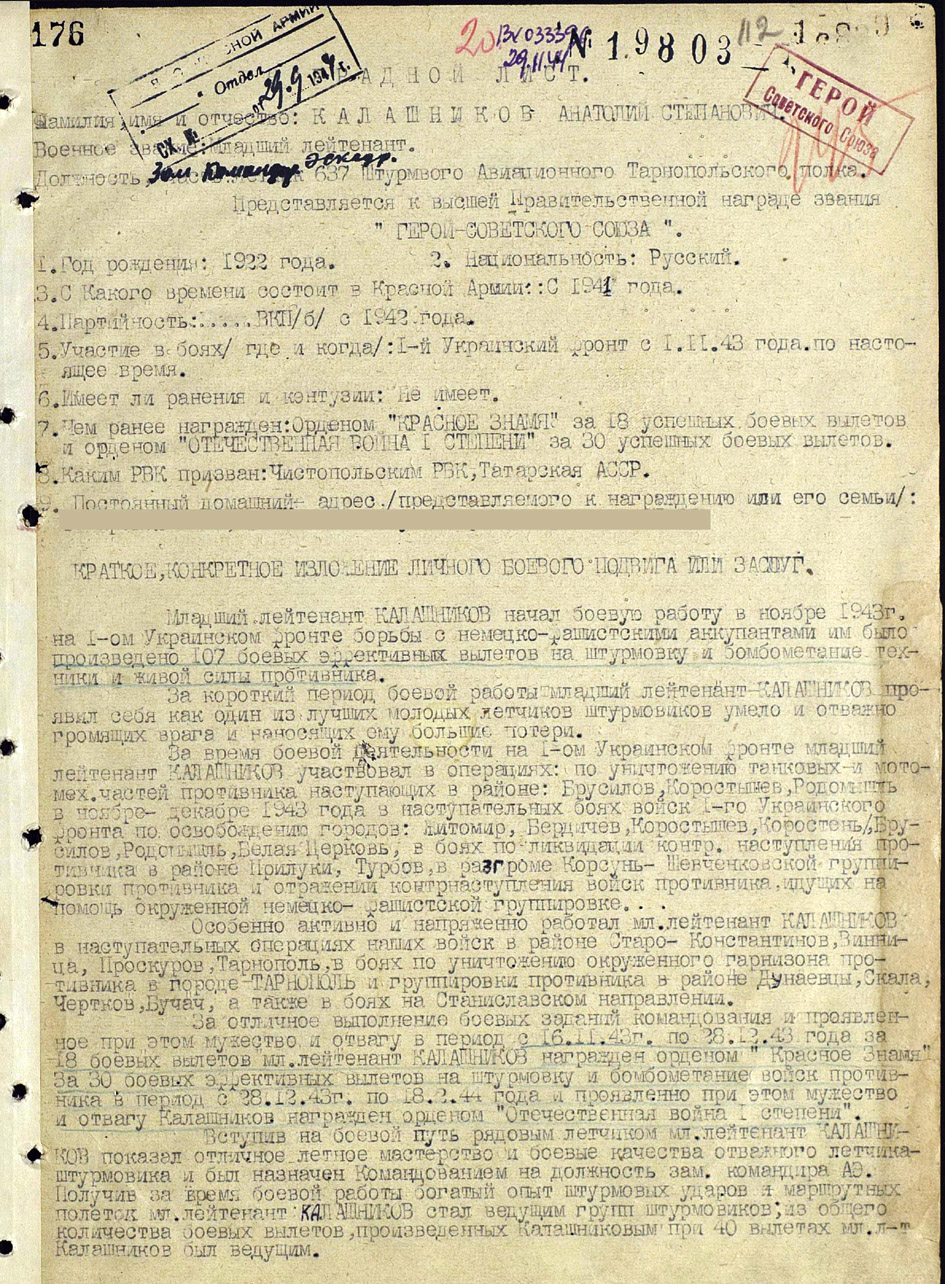 176
КРАСНОЙ АРМИИ
Отдел
29.9 1944 г.
СХ. №
20
29.11.44
№ 19803
112
ГЕРОЙ
Советского Союза
АДНОЙ ЛИСТ.
Фамилия, имя и отчество: КАЛАШНИКОВ АНАТОЛИЙ СТЕПАНОВИЧ.
Военное звание: Младший лейтенант.
Должность, Зам Командир эскадр. 637 Штурмвого Авиационного Тарнопольского полка.
Представляется к высшей Правительственной награде звания
" ГЕРОЙ-СОВЕТСКОГО СОЮЗА ".
1.Год рождения: 1922 года. 2. Национальность: Русский.
3.С Какого времени состоит в Красной Армии::С 1941 года.
4.Партийность:.....ВКП/б/ с 1942 года.
5.Участие в боях/ где и когда/:I-й Украинский фронт с I.II.43 года.по насто-
ящее время.
6.Имеет ли ранения и контузии: Не имеет.
7.Чем ранее награжден:Орденом "КРАСНОЕ ЗНАМЯ" за 18 успешных боевых вылетов
и орденом "ОТЕЧЕСТВЕННАЯ ВОЙНА I СТЕПЕНИ" за 30 успешных боевых вылетов.
8.Каким РВК призван:Чистопольским РВК,Татарская АССР.
9. Постоянный домашний- адрес./представляемого к награждению или его семьи/:
КРАТКОЕ,КОНКРЕТНОЕ ИЗЛОЖЕНИЕ ЛИЧНОГО БОЕВОГО ПОДВИГА ИЛИ ЗАСЛУГ.
Младший лейтенант КАЛАШНИКОВ начал боевую работу в ноябре 1943г.
на I-ом Украинском фронте борьбы с немецко-фашистскими аккупантами им было
произведено 107 боевых эффективных вылетов на штурмовку и бомбометание тех-
ники и живой силы противника.
За короткий период боевой работы младший лейтенант КАЛАШНИКОВ про-
явил себя как один из лучших молодых летчиков штурмовиков умело и отважно
громящих врага и наносящих ему большие потери.
За время боевой деятельности на I-ом Украинском фронте младший
лейтенант КАЛАШНИКОВ участвовал в операциях: по уничтожению танковых и мото-
мех.частей противника наступающих в районе: Брусилов,Коростышев,Родомышль
в ноябре- декабре 1943 года в наступательных боях войск I-го Украинского
фронта по освобождению городов: Житомир, Бердичев,Коростышев,Коростень/,Бру-
силов,Родомышль,Белая Церковь, в боях по ликвидации контр. наступления про-
тивника в районе Прилуки, Турбов,в разгроме Корсунь- Шевченковской группи-
ровки противника и отражении контрнаступления войск противника,идущих на
помощь окруженной немецко- фашистской группировке...
Особенно активно и напряженно работал мл.лейтенант КАЛАШНИКОВ
в наступательных операциях наших войск в районе Старо- Константинов,Винни-
ца, Проскуров,Тарнополь,в боях по уничтожению окруженого гарнизона про-
тивника в городе-ТАРНОПОЛЬ и группировки противника в районе Дунаевцы,Скала,
Чертков,Бучач, а также в боях на Станиславском направлении.
За отличное выполнение боевых заданий командования и проявлен-
ное при этом мужество и отвагу в период с 16.II.43г. по 28.12.43 года за
18 боевых вылетов мл.лейтенант КАЛАШНИКОВ награжден орденом " Красное Знамя"
За 30 боевых эффективных вылетов на штурмовку и бомбометание войск против-
ника в период с 28.12.43г. по 18.2.44 года и проявленно при этом мужество
и отвагу Калашников награжден орденом "Отечественная война I степени".
Вступив на боевой путь рядовым летчиком мл.лейтенант КАЛАШНИ-
КОВ показал отличное летное мастерство и боевые качества отважного летчика-
штурмовика и был назначен Командованием на должность зам. командира АЭ.
Получив за время боевой работы богатый опыт штурмовых ударов и маршрутных
полеток мл.лейтенант КАЛАШНИКОВ стал ведущим групп штурмовиков,из общего
количества боевых вылетов,произведенных Калашниковым при 40 вылетах мл.л-т
Калашников был ведущим.